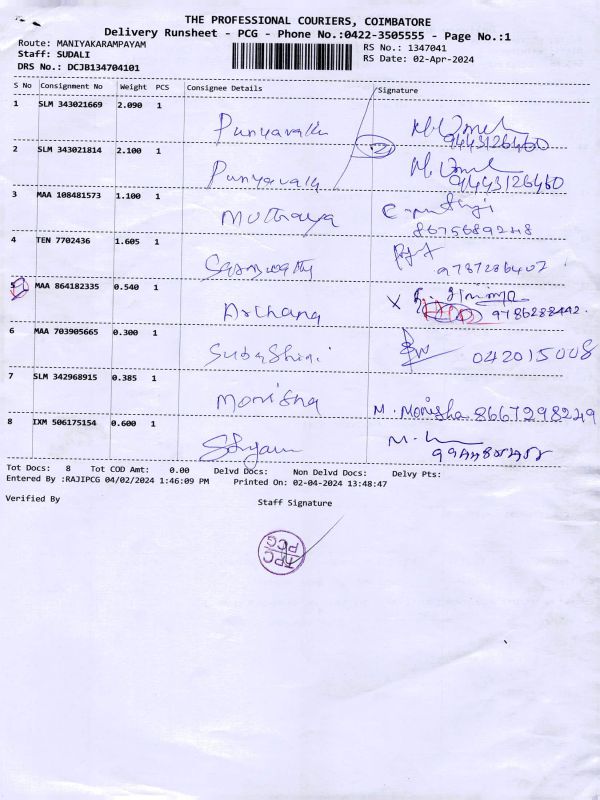 THE PROFESSIONAL COURIERS, COIMBATORE
Delivery Runsheet - PCG - Phone No.:0422-3505555 - Page No.:1
Route: MANIYAKARAMPAYAM
RS No.: 1347041
Staff: SUDALI
RS Date: 02-Apr-2024
DRS No.: DCJB134704101
S No Consignment No Weight PCS Consignee Details Signature
1 SLM 343021669 2.090 1 9443126460
2 SLM 343021814 2.100 1 9443126460
3 MAA 108481573 1.100 1
4 TEN 7702436 1.605 1 9787286407
5 MAA 864182335 0.540 1 Archana 9786288442.
6 MAA 703905665 0.300 1 042015008
7 SLM 342968915 0.385 1 Monisha M. Monisha 8667298249
8 IXM 506175154 0.600 1
Tot Docs: 8 Tot COD Amt: 0.00 Delvd Docs: Non Delvd Docs: Delvy Pts:
Entered By :RAJIPCG 04/02/2024 1:46:09 PM Printed On: 02-04-2024 13:48:47
Verified By Staff Signature
TPC
PCG